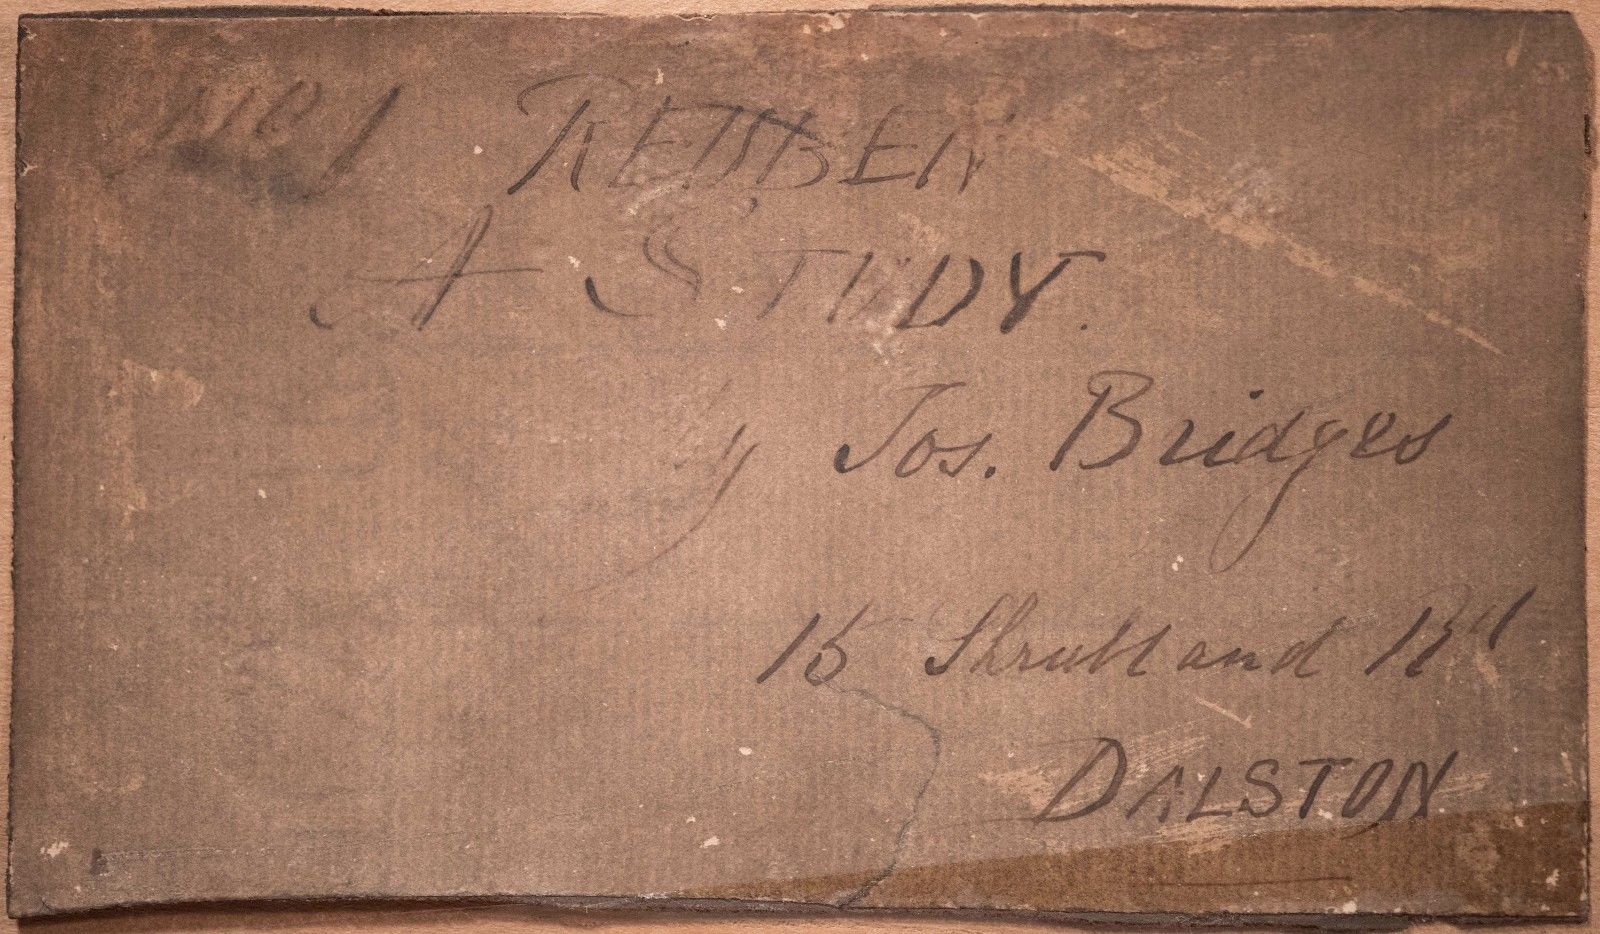 No 1 REUBEN
A STUDY.
by Jos. Bridges
15 Shrubland Rd
DALSTON